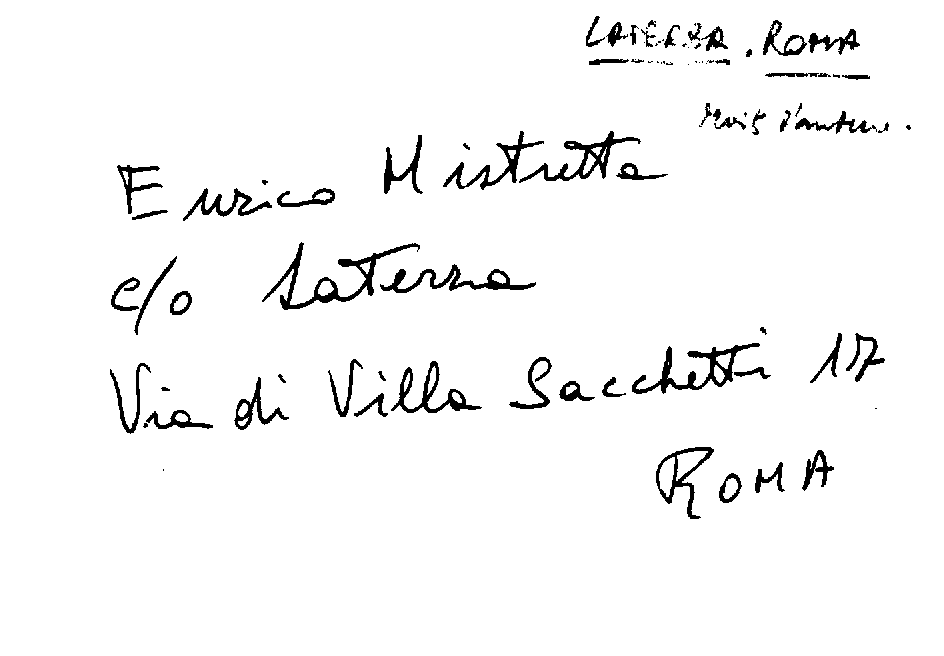 LATERZA. ROMA
droits d'auteur.
Enrico Mistretta
c/o Laterza
Via di Villa Sacchetti 17
ROMA